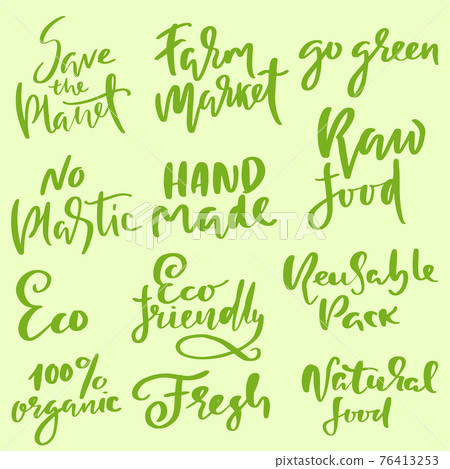 Save
the
Planet
Farm
Market
go green
Raw
food
No
Plastic
HAND
made
Eco
Eco
friendly
Reusable
Pack
100%
organic
Fresh
Natural
food
PIXTA
76413253